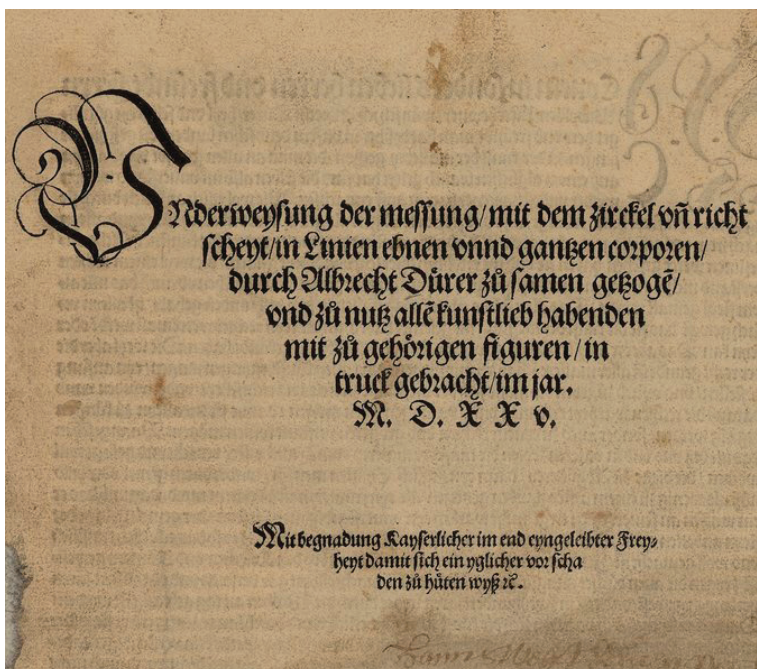 VNderweysung der messung/mit dem zirckel vñ richt
scheyt/in Linien ebnen vnnd gantzen corporen/
durch Albrecht Dürer zů samen getzogẽ/
vnd zů nutz allẽ kunstlieb habenden
mit zů gehörigen figuren/in
truck gebracht/im jar.
M. D. X X v.
Mit begnadung Kayserlicher im end eyngeleibter Frey⸗
heyt damit sich ein yglicher vor scha
den zů hůten wyß ꝛc̃.